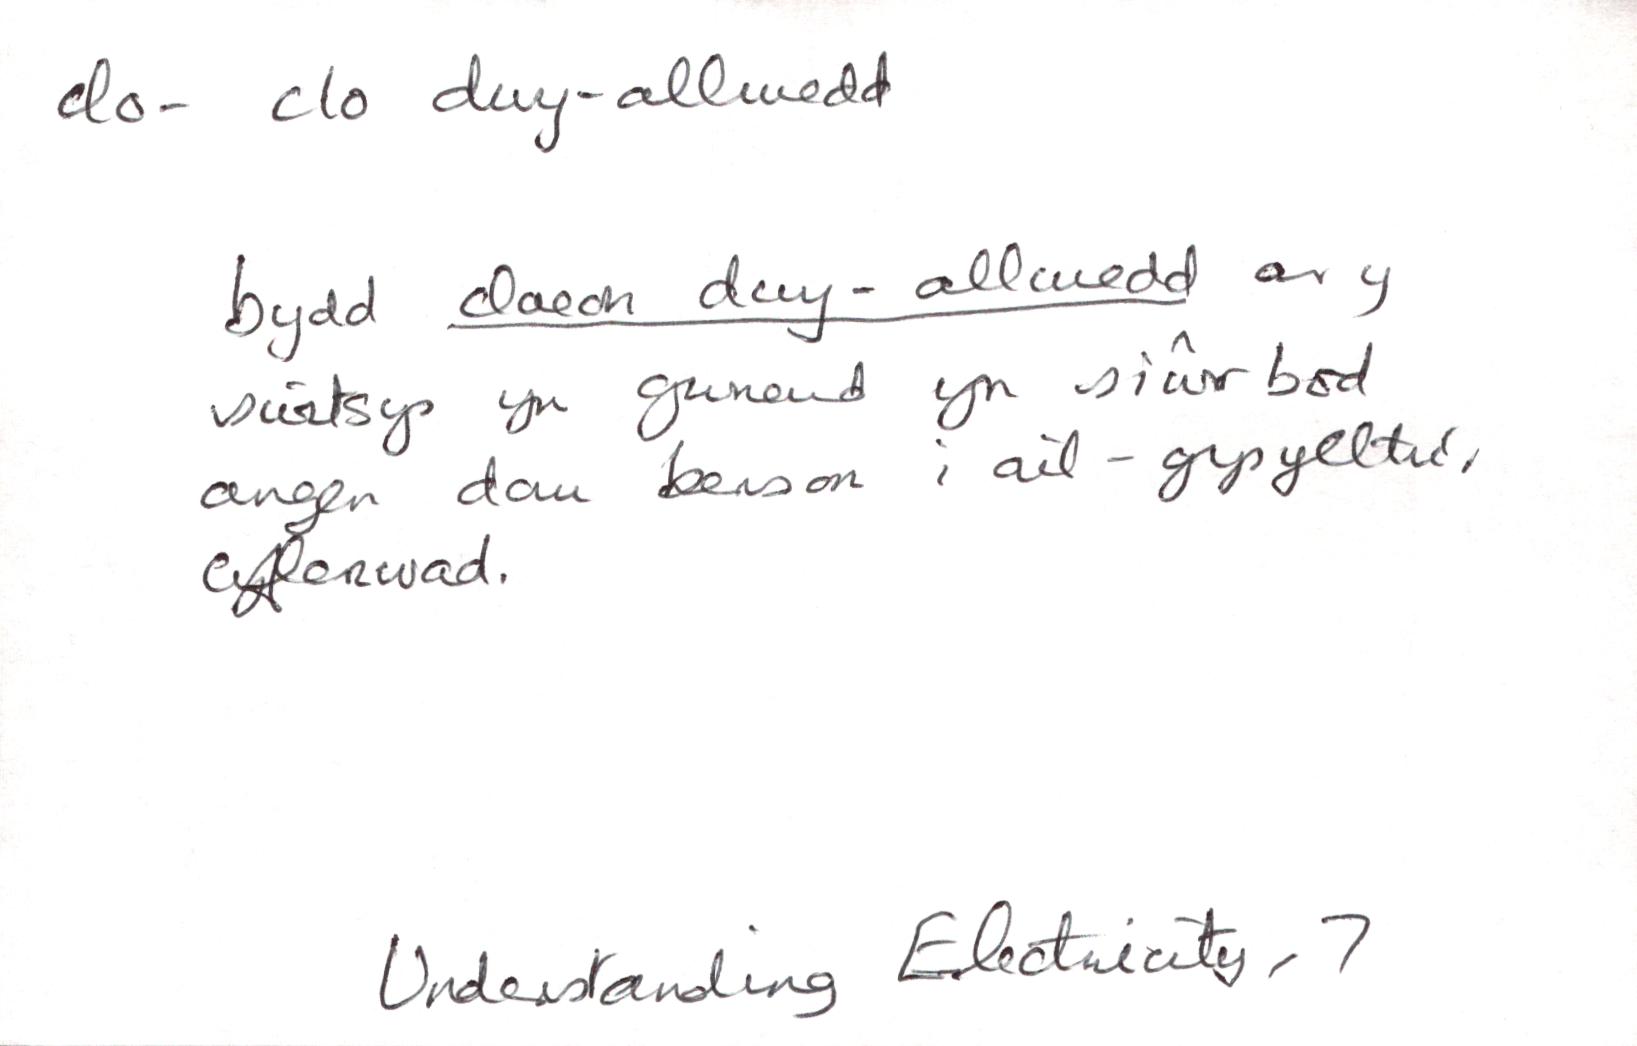 clo- clo dwy-allwedd
bydd cloeon dwy-allwedd ar y
switsys yn gwneud yn siŵr bod
angen dau berson i ail-gysylltu'r
cyflenwad.
Understanding Electricity, 7